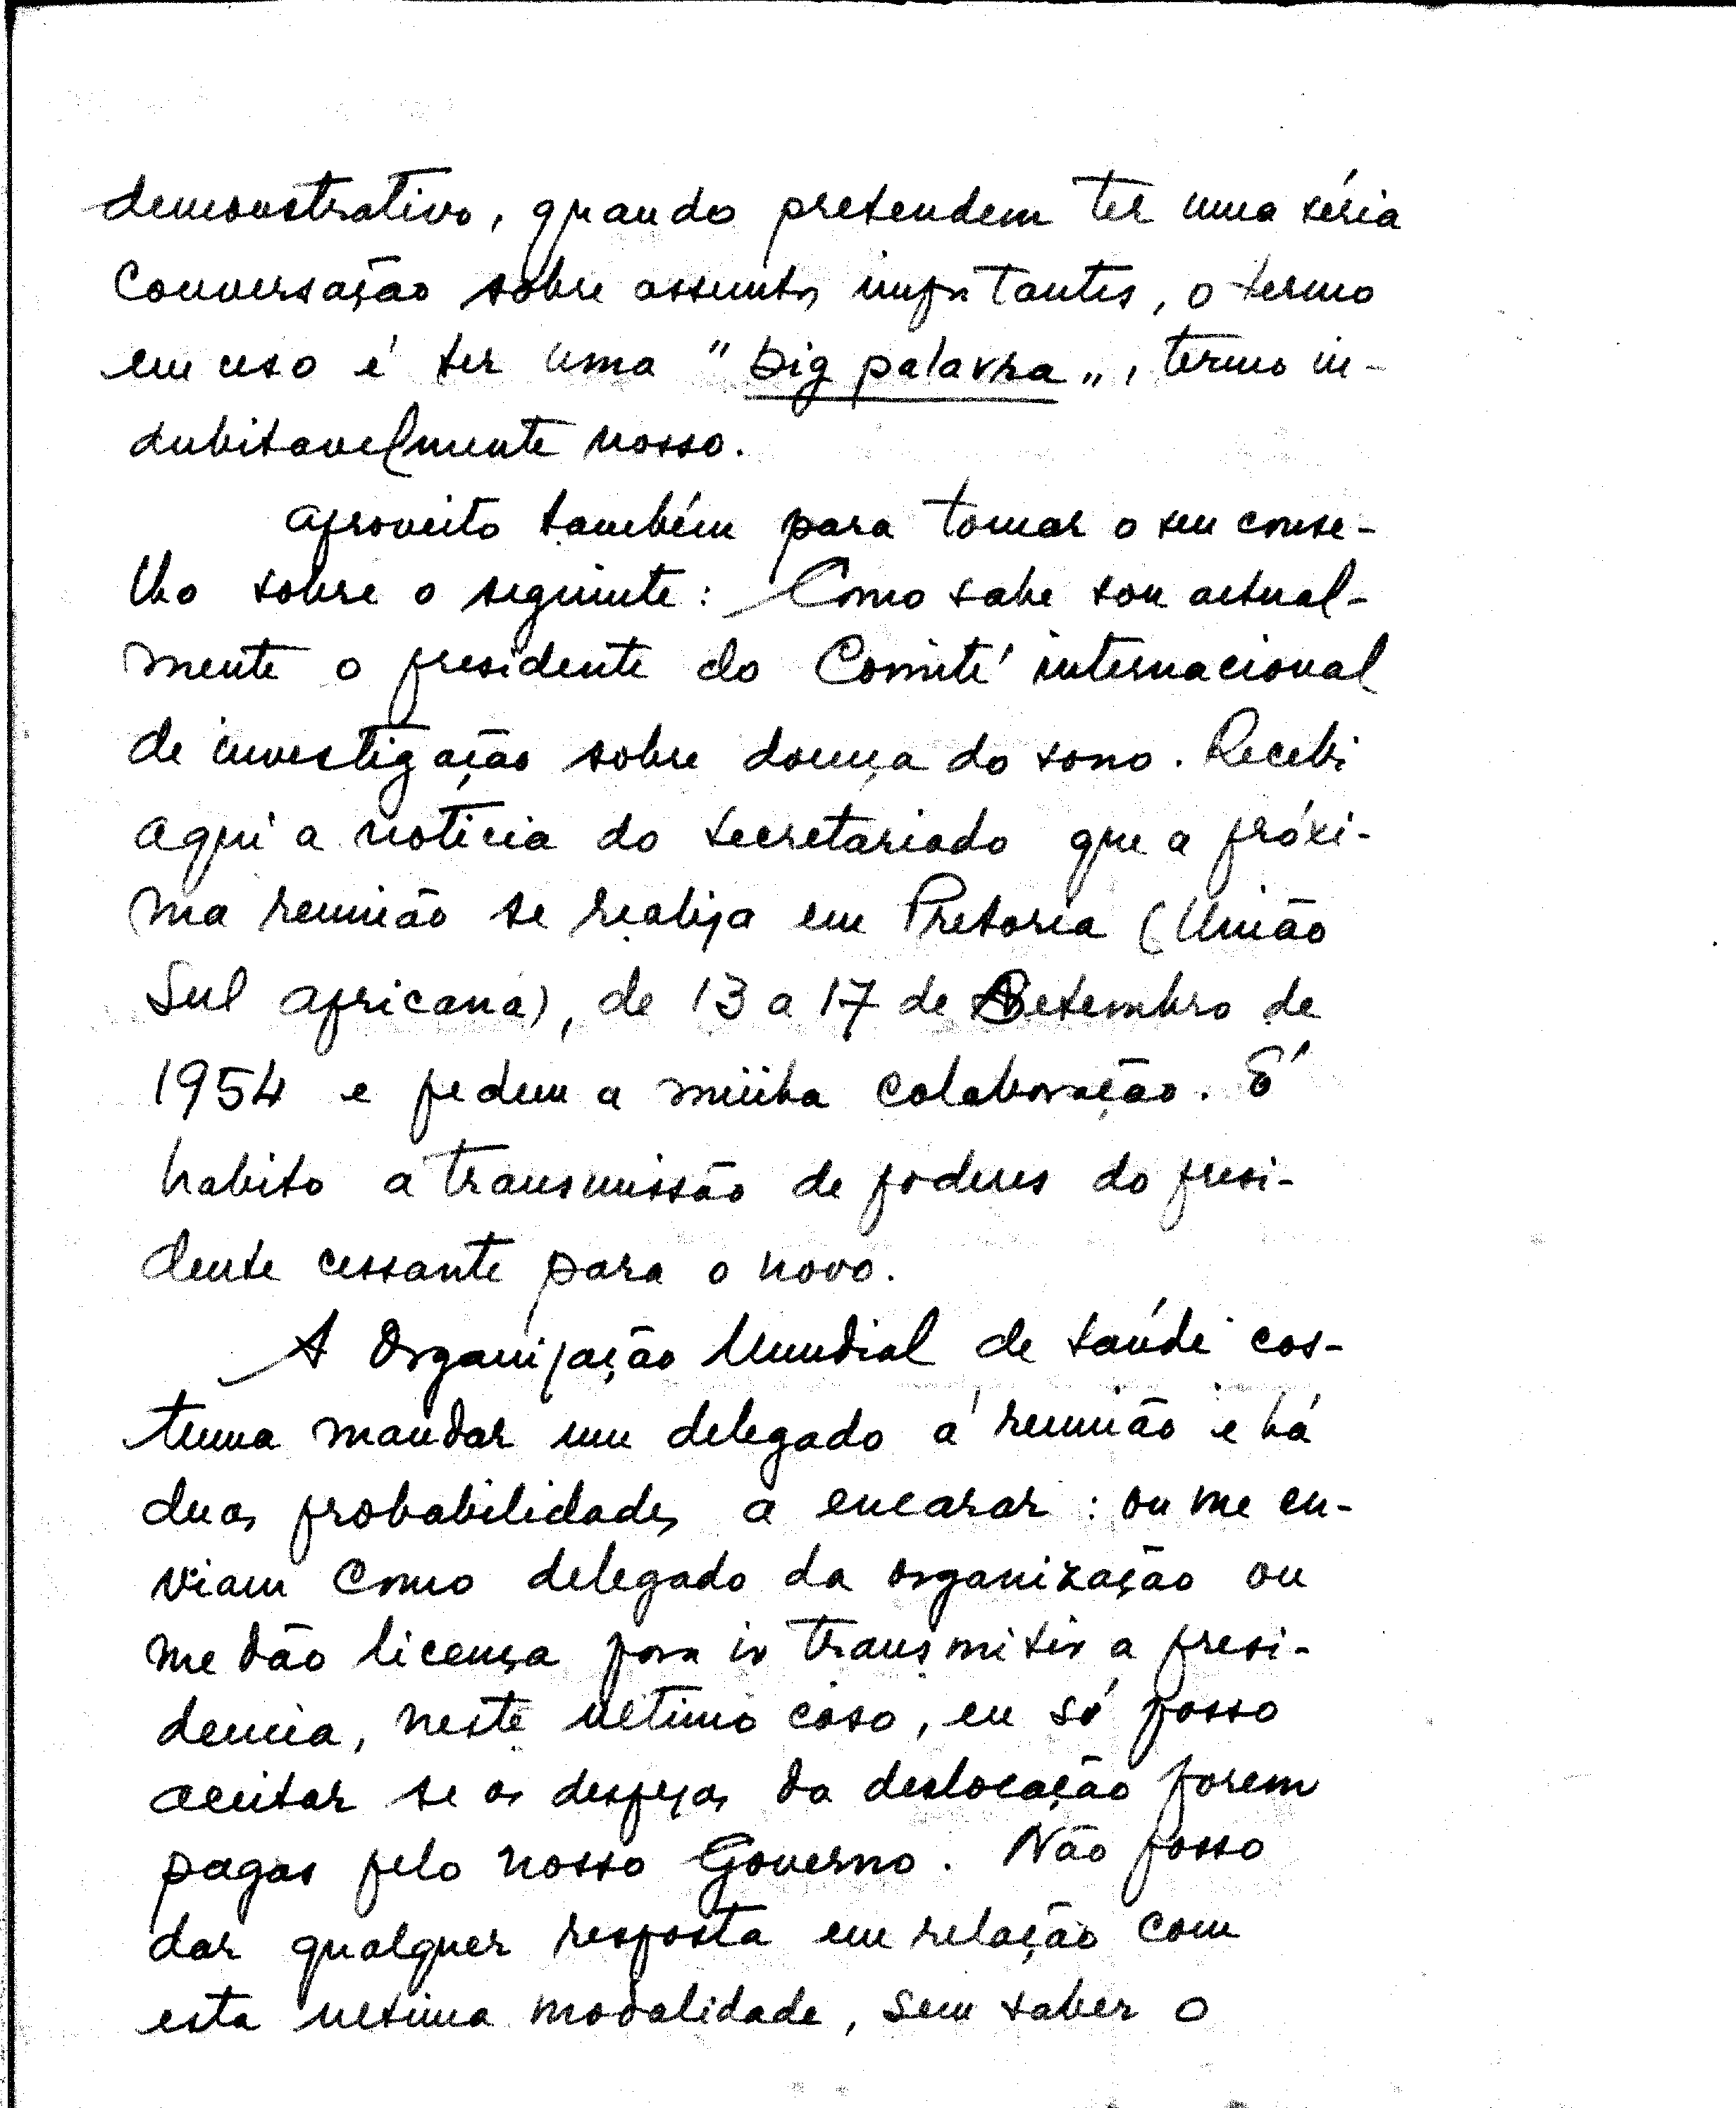 demonstrativo, quando pretendem ter uma séria
conversação sôbre assuntos importantes, o termo
em uso é ter uma "big palavra„, termo in-
dubitavelmente nosso.
Aproveito também para tomar o seu conse-
lho sobre o seguinte: Como sabe sou actual-
mente o presidente do Comité internacional
de investigação sobre doença do sono. Recebi
aqui a notícia do secretariado que a próxi-
ma reunião se realiza em Pretoria (União
Sul africana), de 13 a 17 de Setembro de
1954 e pedem a minha colaboração. É
habito a transmissão de poderes do presi-
dente cessante para o novo.
A Organização Mundial de Saúde cos-
tuma mandar um delegado á reunião e há
duas probabilidades a encarar: ou me en-
viam como delegado da organização ou
me dão licença para ir transmitir a presi-
dencia, neste ultimo caso, eu só posso
aceitar se as despezas da deslocação forem
pagas pelo nosso Governo. Não posso
dar qualquer resposta em relação com
esta ultima modalidade, sem saber o